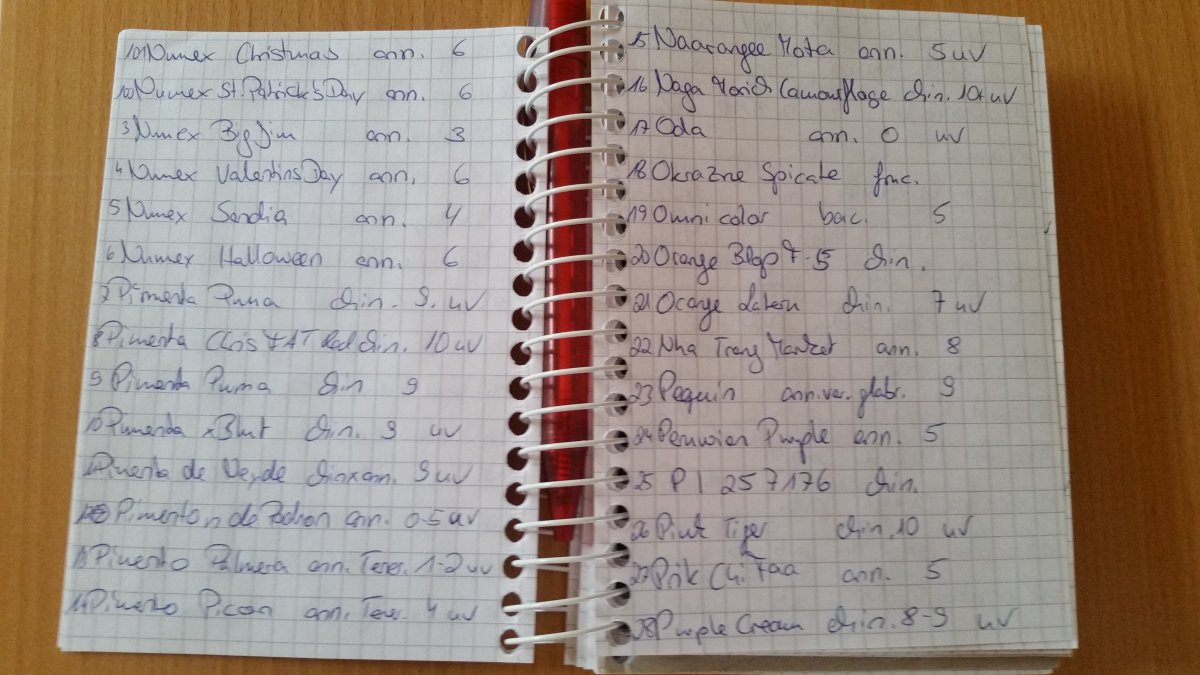 101 Numex Christmas ann. 6
102 Numex St. Patrick's Day ann. 6
3 Numex Big Jim ann. 3
4 Numex Valentins Day ann. 6
5 Numex Sandia ann. 4
6 Numex Halloween ann. 6
7 Pimenta Puna chin. 9. uv
8 Pimenta Chris FAT Red chin. 10 uv
9 Pimenta Puma chin 9
10 Pimenta x Bhut chin. 9 uv
11 Pimenta de Verde chin x ann. 9 uv
12 Pimenton de Padron ann. 0-5 uv
13 Pimento Palmera ann. Tener. 1-2 uv
14 Pimento Picon ann. Tener. 4 uv
15 Naarangee Mota ann. 5 uv
16 Naga Morich Camouflage chin. 10+ uv
17 Oda ann. 0 uv
18 Okrazne Spicate fruc.
19 Omnicolor bac. 5
20 Orange chin.
21 Orange Latern chin. 7 uv
22 Nha Trang Market ann. 8
23 Pequin ann. var. glabr. 9
24 Peruvian Purple ann. 5
25 P I 257176 chin.
26 Pink Tiger chin. 10 uv
27 Prik Chi Faa ann. 5
28 Purple Cream chin. 8-9 uv